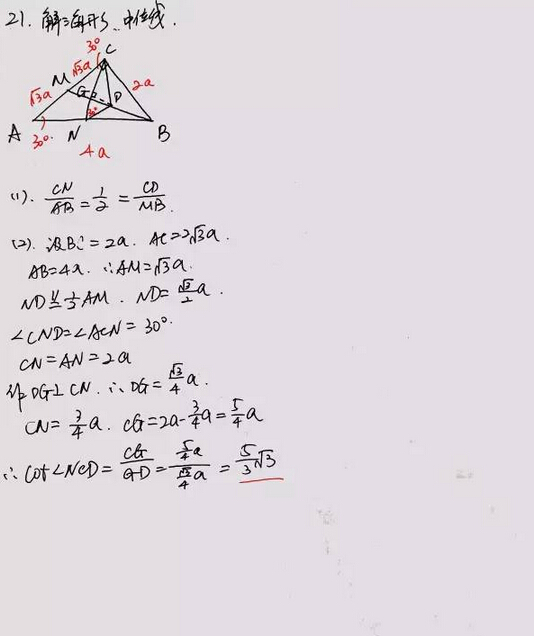 21. 解三角形、中位线.
30°
C
M
√3a
2a
G
D
√3a
30°
A
30°
N
B
4a
(1). CN/AB = 1/2 = CD/MB.
(2). 设BC = 2a. AC = 2√3a.
AB = 4a. ∴AM = √3a.
ND ∥= 1/2 AM. ND = √3/2 a.
∠CND = ∠ACN = 30°.
CN = AN = 2a
作DG⊥CN. ∴DG = √3/4 a.
GN = 3/4 a. CG = 2a - 3/4 a = 5/4 a
∴ Cot∠NCD = CG/GD = 5/4 a / √3/4 a = 5/3 √3